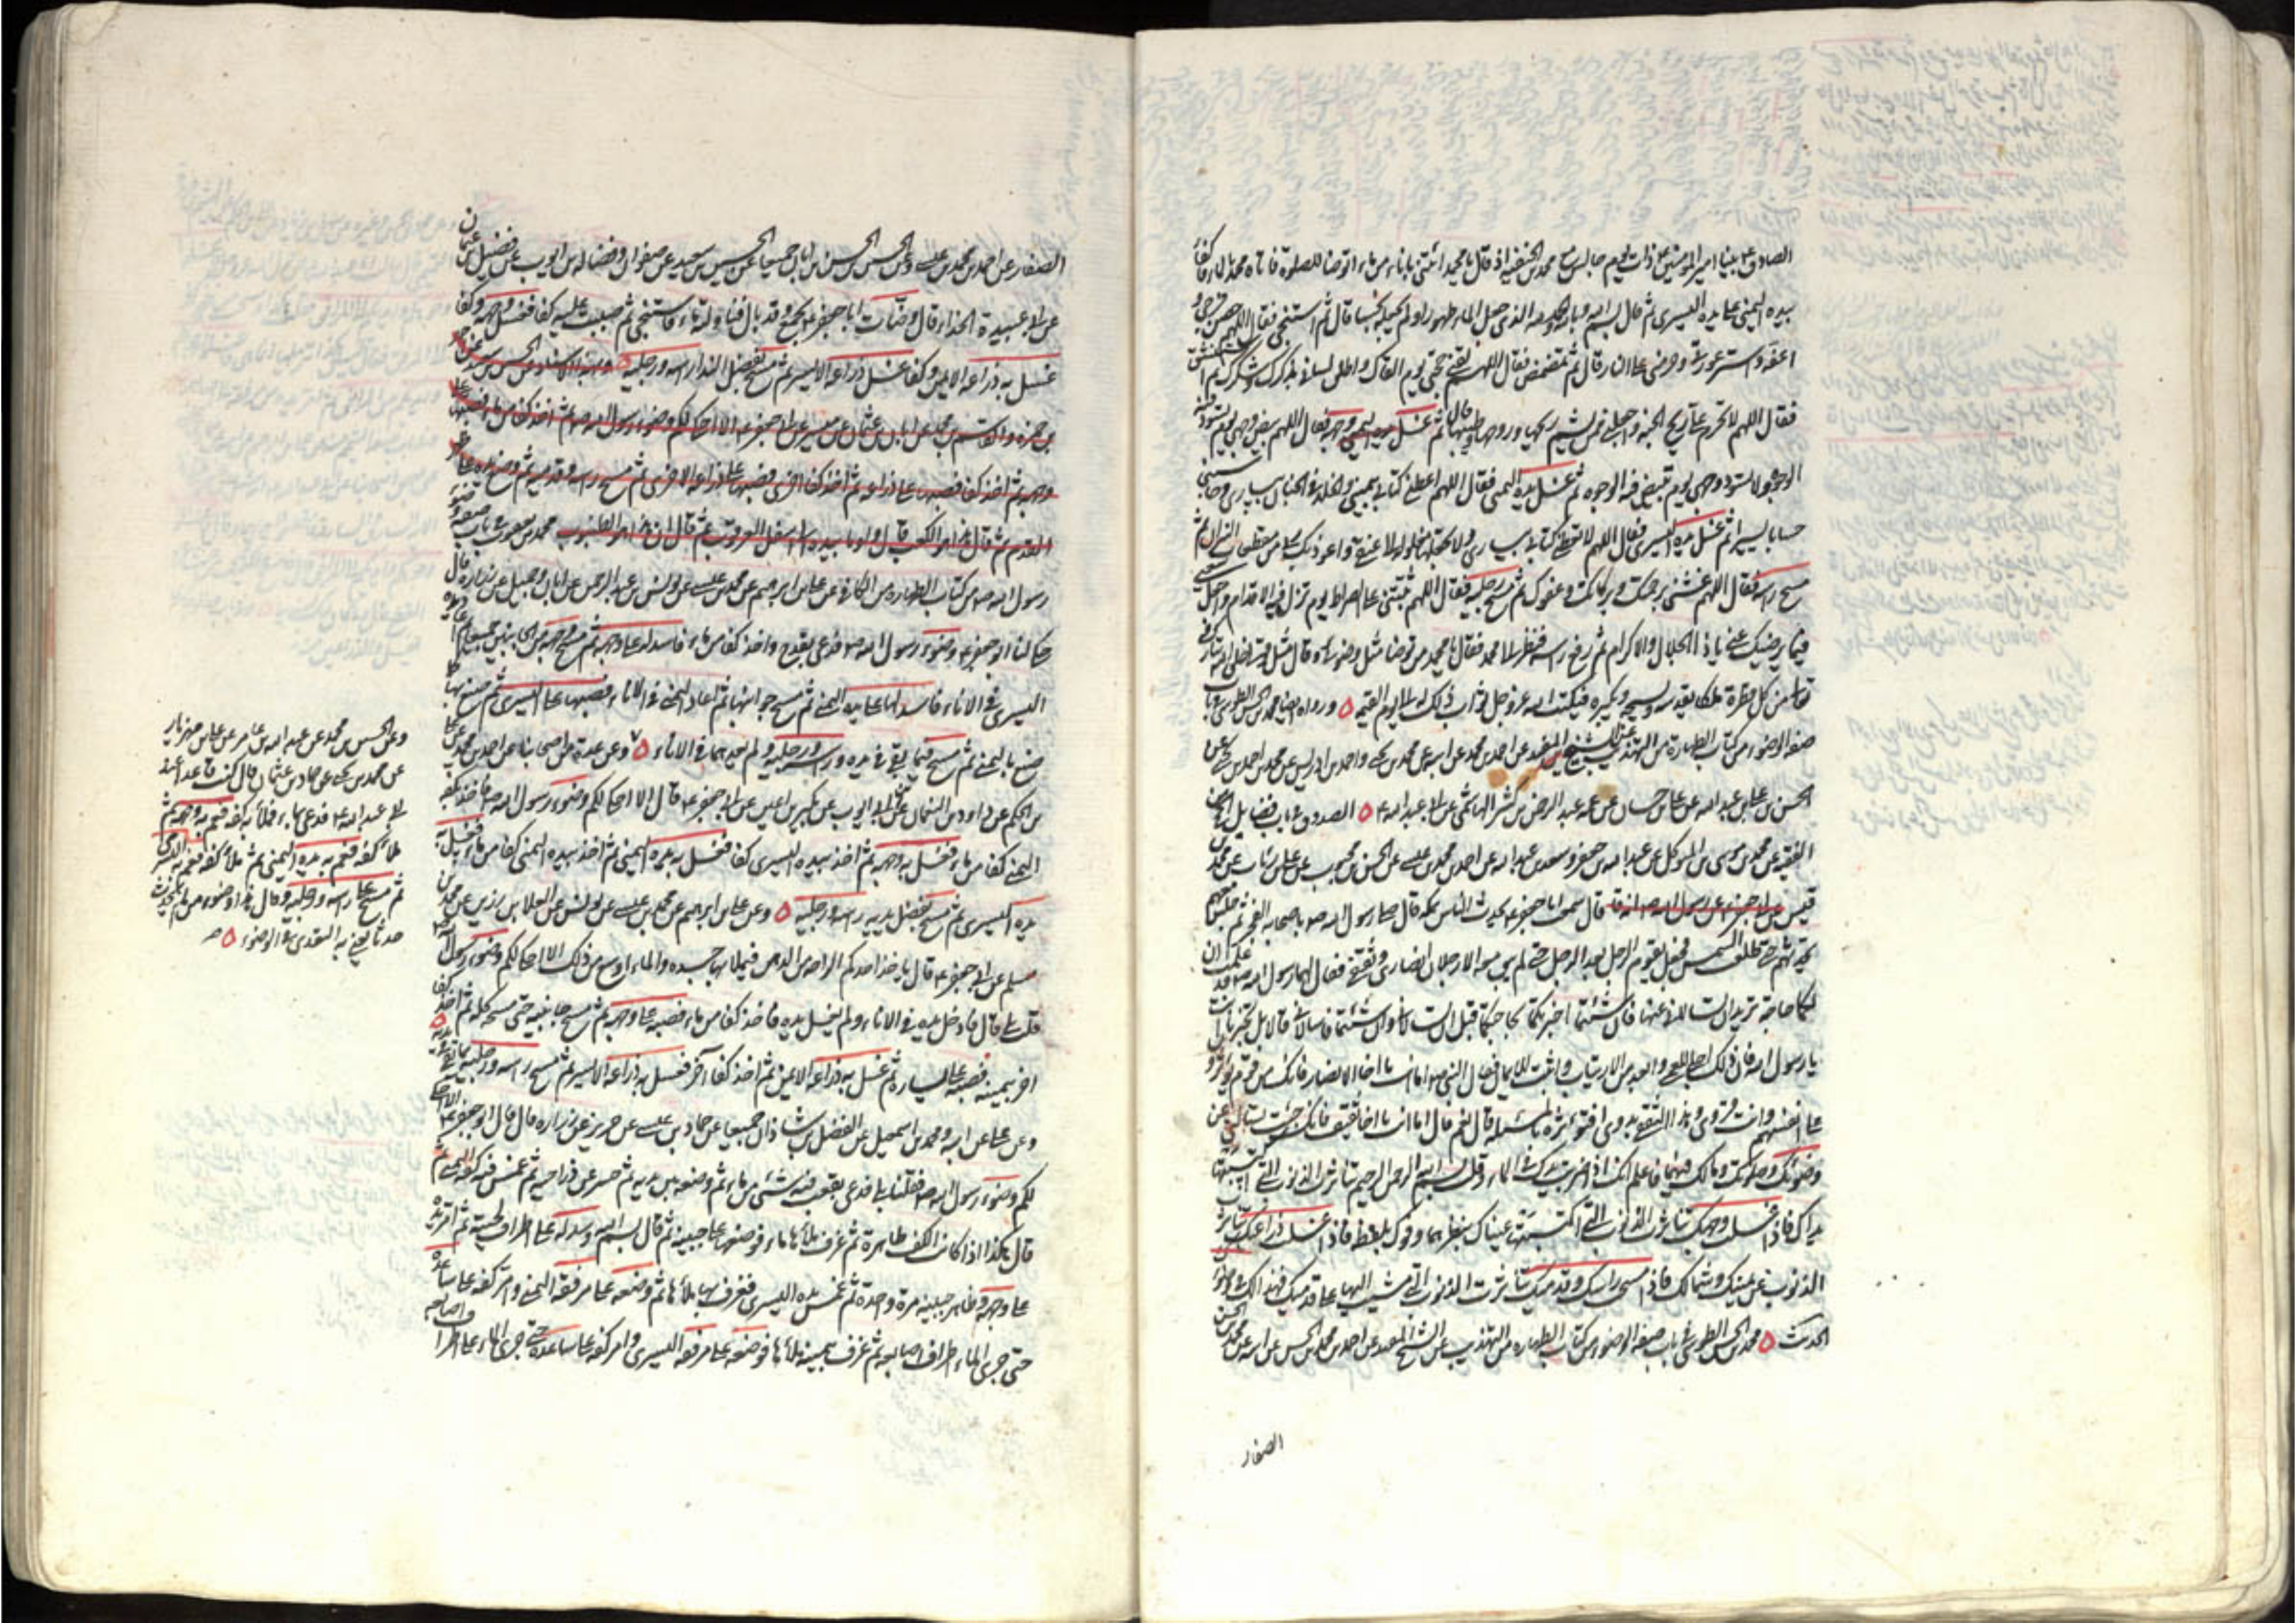 الصادق ع بينا امير المؤمنين ع ذات يوم جالس مع محمد بن الحنفيه اذ قال يا محمد ائتني باناء من ماء اتوضا للصلوة فاتاه محمد بالماء فاكفا
بيده اليمنى على يده اليسرى ثم قال بسم الله وبالله والحمد لله الذي جعل الماء طهورا ولم يجعله نجسا قال ثم استنجى فقال اللهم حصن فرجي و
اعفه واستر عورتي وحرمني على النار قال ثم تمضمض فقال اللهم لقني حجتي يوم القاك واطلق لساني بذكرك وشكرك ثم استنشق
فقال اللهم لا تحرم علي ريح الجنة واجعلني ممن يشم ريحها وروحها وطيبها قال ثم غسل وجهه فقال اللهم بيض وجهي يوم تسود فيه
الوجوه ولا تسود وجهي يوم تبيض فيه الوجوه ثم غسل يده اليمنى فقال اللهم اعطني كتابي بيميني والخلد في الجنان بيساري وحاسبني
حسابا يسيرا ثم غسل يده اليسرى فقال اللهم لا تعطني كتابي بيساري ولا تجعلها مغلولة الى عنقي واعوذ بك من مقطعات النيران ثم
مسح راسه فقال اللهم غشني برحمتك وبركاتك وعفوك ثم مسح رجليه فقال اللهم ثبتني على الصراط يوم تزل فيه الاقدام واجعل سعيي
فيما يرضيك عني يا ذا الجلال والاكرام ثم رفع راسه فنظر الى محمد فقال يا محمد من توضا مثل وضوئي وقال مثل قولي خلق الله تبارك
وتعالى من كل قطرة ملكا يقدسه ويسبحه ويكبره فيكتب الله عز وجل ثواب ذلك له الى يوم القيمة ٥ ورواه ايضا محمد بن الحسن الطوسي في باب
صفة الوضوء من كتاب الطهارة من التهذيب عن الشيخ المفيد عن احمد بن محمد عن ابيه عن محمد بن يحيى واحمد بن ادريس عن محمد بن احمد بن يحيى عن
الحسن بن علي بن عبد الله عن علي بن حسان عن عمه عبد الرحمن بن كثر الهاشمي عن ابي عبد الله ع ٥ الصدوق في باب فضايل الحج من
الفقيه عن محمد بن موسى بن المتوكل عن عبد الله بن جعفر وسعد بن عبد الله عن احمد بن محمد بن عيسى عن الحسن بن محبوب عن علي بن رئاب عن محمد بن
قيس قال سمعت ابا جعفر ع يحدث الناس بمكه قال صلى رسول الله ص باصحابه الفجر ثم جلس معهم
يحدثهم حتى طلعت الشمس فجعل يقوم الرجل بعد الرجل حتى لم يبق معه الا رجلان انصاري وثقفي فقال لهما رسول الله ص قد علمت ان
لكما حاجة تريدان تسالاني عنها فان شئتما اخبرتكما بحاجتكما قبل ان تسالاني وان شئتما فاسالاني قالا بل تخبرنا انت
يا رسول الله فان ذلك اجلى للعمى وابعد من الارتياب واثبت للايمان فقال النبي ص اما انت يا اخا الانصار فانك من قوم يؤثرون
على انفسهم وانت قروي وهذا الثقفي بدوي افتؤثره بالمسئلة قال نعم قال اما انت يا اخا ثقيف فانك جئت تسالني عن
وضوئك وصلوتك وما لك فيهما فاعلم انك اذا ضربت يدك في الماء وقلت بسم الله الرحمن الرحيم تناثرت الذنوب التي اكتسبتها
يداك فاذا غسلت وجهك تناثرت الذنوب التي اكتسبتها عيناك بنظرهما وفوك بلفظه فاذا غسلت ذراعيك تناثرت
الذنوب عن يمينك وشمالك فاذا مسحت راسك وقدميك تناثرت الذنوب التي مشيت اليها على قدميك فهذا لك في وضوئك
الحديث ٥ محمد بن الحسن الطوسي في باب صفة الوضوء من كتاب الطهاره من التهذيب عن الشيخ المفيد عن احمد بن محمد بن الحسن عن ابيه عن محمد بن الحسن
الصفار
الصفار عن احمد بن محمد بن عيسى وعن الحسين بن الحسن بن ابان جميعا عن الحسين بن سعيد عن صفوان وفضاله بن ايوب عن فضيل بن عثمان
عن ابي عبيدة الحذاء قال وضأت ابا جعفر ع بجمع وقد بال فناولته ماء فاستنجى ثم صببت عليه كفا فغسل وجهه وكفا
غسل به ذراعه الايمن وكفا غسل ذراعه الايسر ثم مسح بفضل الندا راسه ورجليه ٥
ثم اخذ كفا فصبها على ذراعه ثم اخذ كفا اخرى فصبها على ذراعه الاخرى ثم مسح راسه وقدميه ثم وضع يده على ظهر
القدم ثم قال هذا هو الكعب قال واومأ بيده الى اسفل العرقوب ثم قال ان هذا هو الظنبوب محمد بن يعقوب في باب صفة وضوء
رسول الله ص من كتاب الطهاره من الكافي عن علي بن ابراهيم عن محمد بن عيسى عن يونس بن عبد الرحمن عن ابان وجميل عن زراره قال
حكى لنا ابو جعفر ع وضوء رسول الله ص فدعى بقدح واخذ كفا من ماء فاسدله على وجهه ثم مسح وجهه من الجانبين جميعا ثم اعاد يده
اليسرى في الاناء فاسدلها على يده اليمنى ثم مسح جوانبها ثم اعاد اليمنى في الاناء فصبها على اليسرى ثم صنع بها كما
صنع باليمنى ثم مسح فيما بقي في يده راسه ورجليه ولم يعدهما في الاناء ٥ وعن عدة من اصحابنا عن احمد بن محمد عن علي
بن الحكم عن داود بن النعمان عن ابي ايوب عن بكير بن اعين عن ابي جعفر ع قال الا احكي لكم وضوء رسول الله ص فاخذ بكفه
اليمنى كفا من ماء فغسل به وجهه ثم اخذ بيده اليسرى كفا فغسل به يده اليمنى ثم اخذ بيده اليمنى كفا من ماء فغسل به
يده اليسرى ثم مسح بفضل يديه راسه ورجليه ٥ وعن علي بن ابراهيم عن محمد بن عيسى عن يونس عن العلا بن رزين عن محمد بن
مسلم عن ابي جعفر ع قال ياخذ احدكم الراحة من الدهن فيملا بها جسده والماء اوسع من ذلك الا احكي لكم وضوء رسول الله ص
قلت بلى قال فادخل يده في الاناء ولم يغسل يده فاخذ كفا من ماء فصبه على وجهه ثم مسح جانبيه حتى مسحه كله ثم اخذ كفا
اخر بيمينه فصبه على يساره ثم غسل به ذراعه الايمن ثم اخذ كفا آخر فغسل به ذراعه الايسر ثم مسح راسه ورجليه بما بقي في يديه ٥
وعن علي عن ابيه ومحمد بن اسمعيل عن الفضل بن شاذان جميعا عن حماد بن عيسى عن حريز عن زراره قال قال ابو جعفر ع الا احكي
لكم وضوء رسول الله ص فقلنا بلى فدعى بقعب فيه شئ من ماء ثم وضعه بين يديه ثم حسر عن ذراعيه ثم غمس فيه كفه اليمنى ثم
قال هكذا اذا كانت الكف طاهرة ثم غرف ملأها ماء فوضعها على جبينه ثم قال بسم الله وسدله على اطراف لحيته ثم امر يده
على وجهه وظاهر جبينه مرة واحدة ثم غمس يده اليسرى فغرف بها ملأها ثم وضعه على مرفقه اليمنى وامر كفه على ساعده
حتى جرى الماء على اطراف اصابعه ثم غرف بيمينه ملأها فوضعه على مرفقه اليسرى وامر كفه على ساعده حتى جرى الماء على اطراف اصابعه
وعن الحسين بن محمد عن عبد الله بن عامر عن علي بن مهزيار
عن محمد بن يحيى عن حماد بن عثمان قال كنت قاعدا عند
ابي عبد الله ع فدعى بماء فملأ به كفه فعم به وجهه ثم
ملأ كفه فعم به يده اليمنى ثم ملأ كفه فعم به اليسرى
ثم مسح على راسه ورجليه وقال هذا وضوء من لم يحدث
حدثا يعني به التعدي في الوضوء ٥